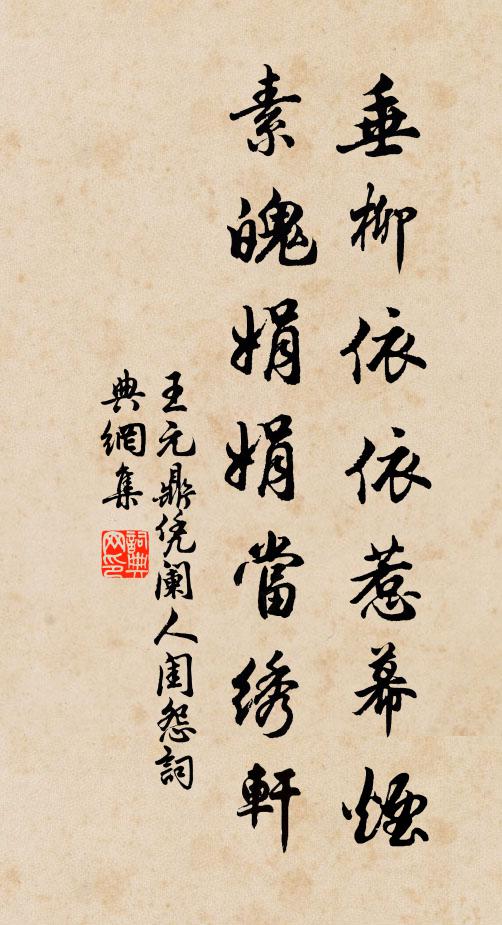 垂柳依依惹幕煙
素魄娟娟當綉軒
王元鼎凭闌人閨怨詞
典網集
詞典
网印